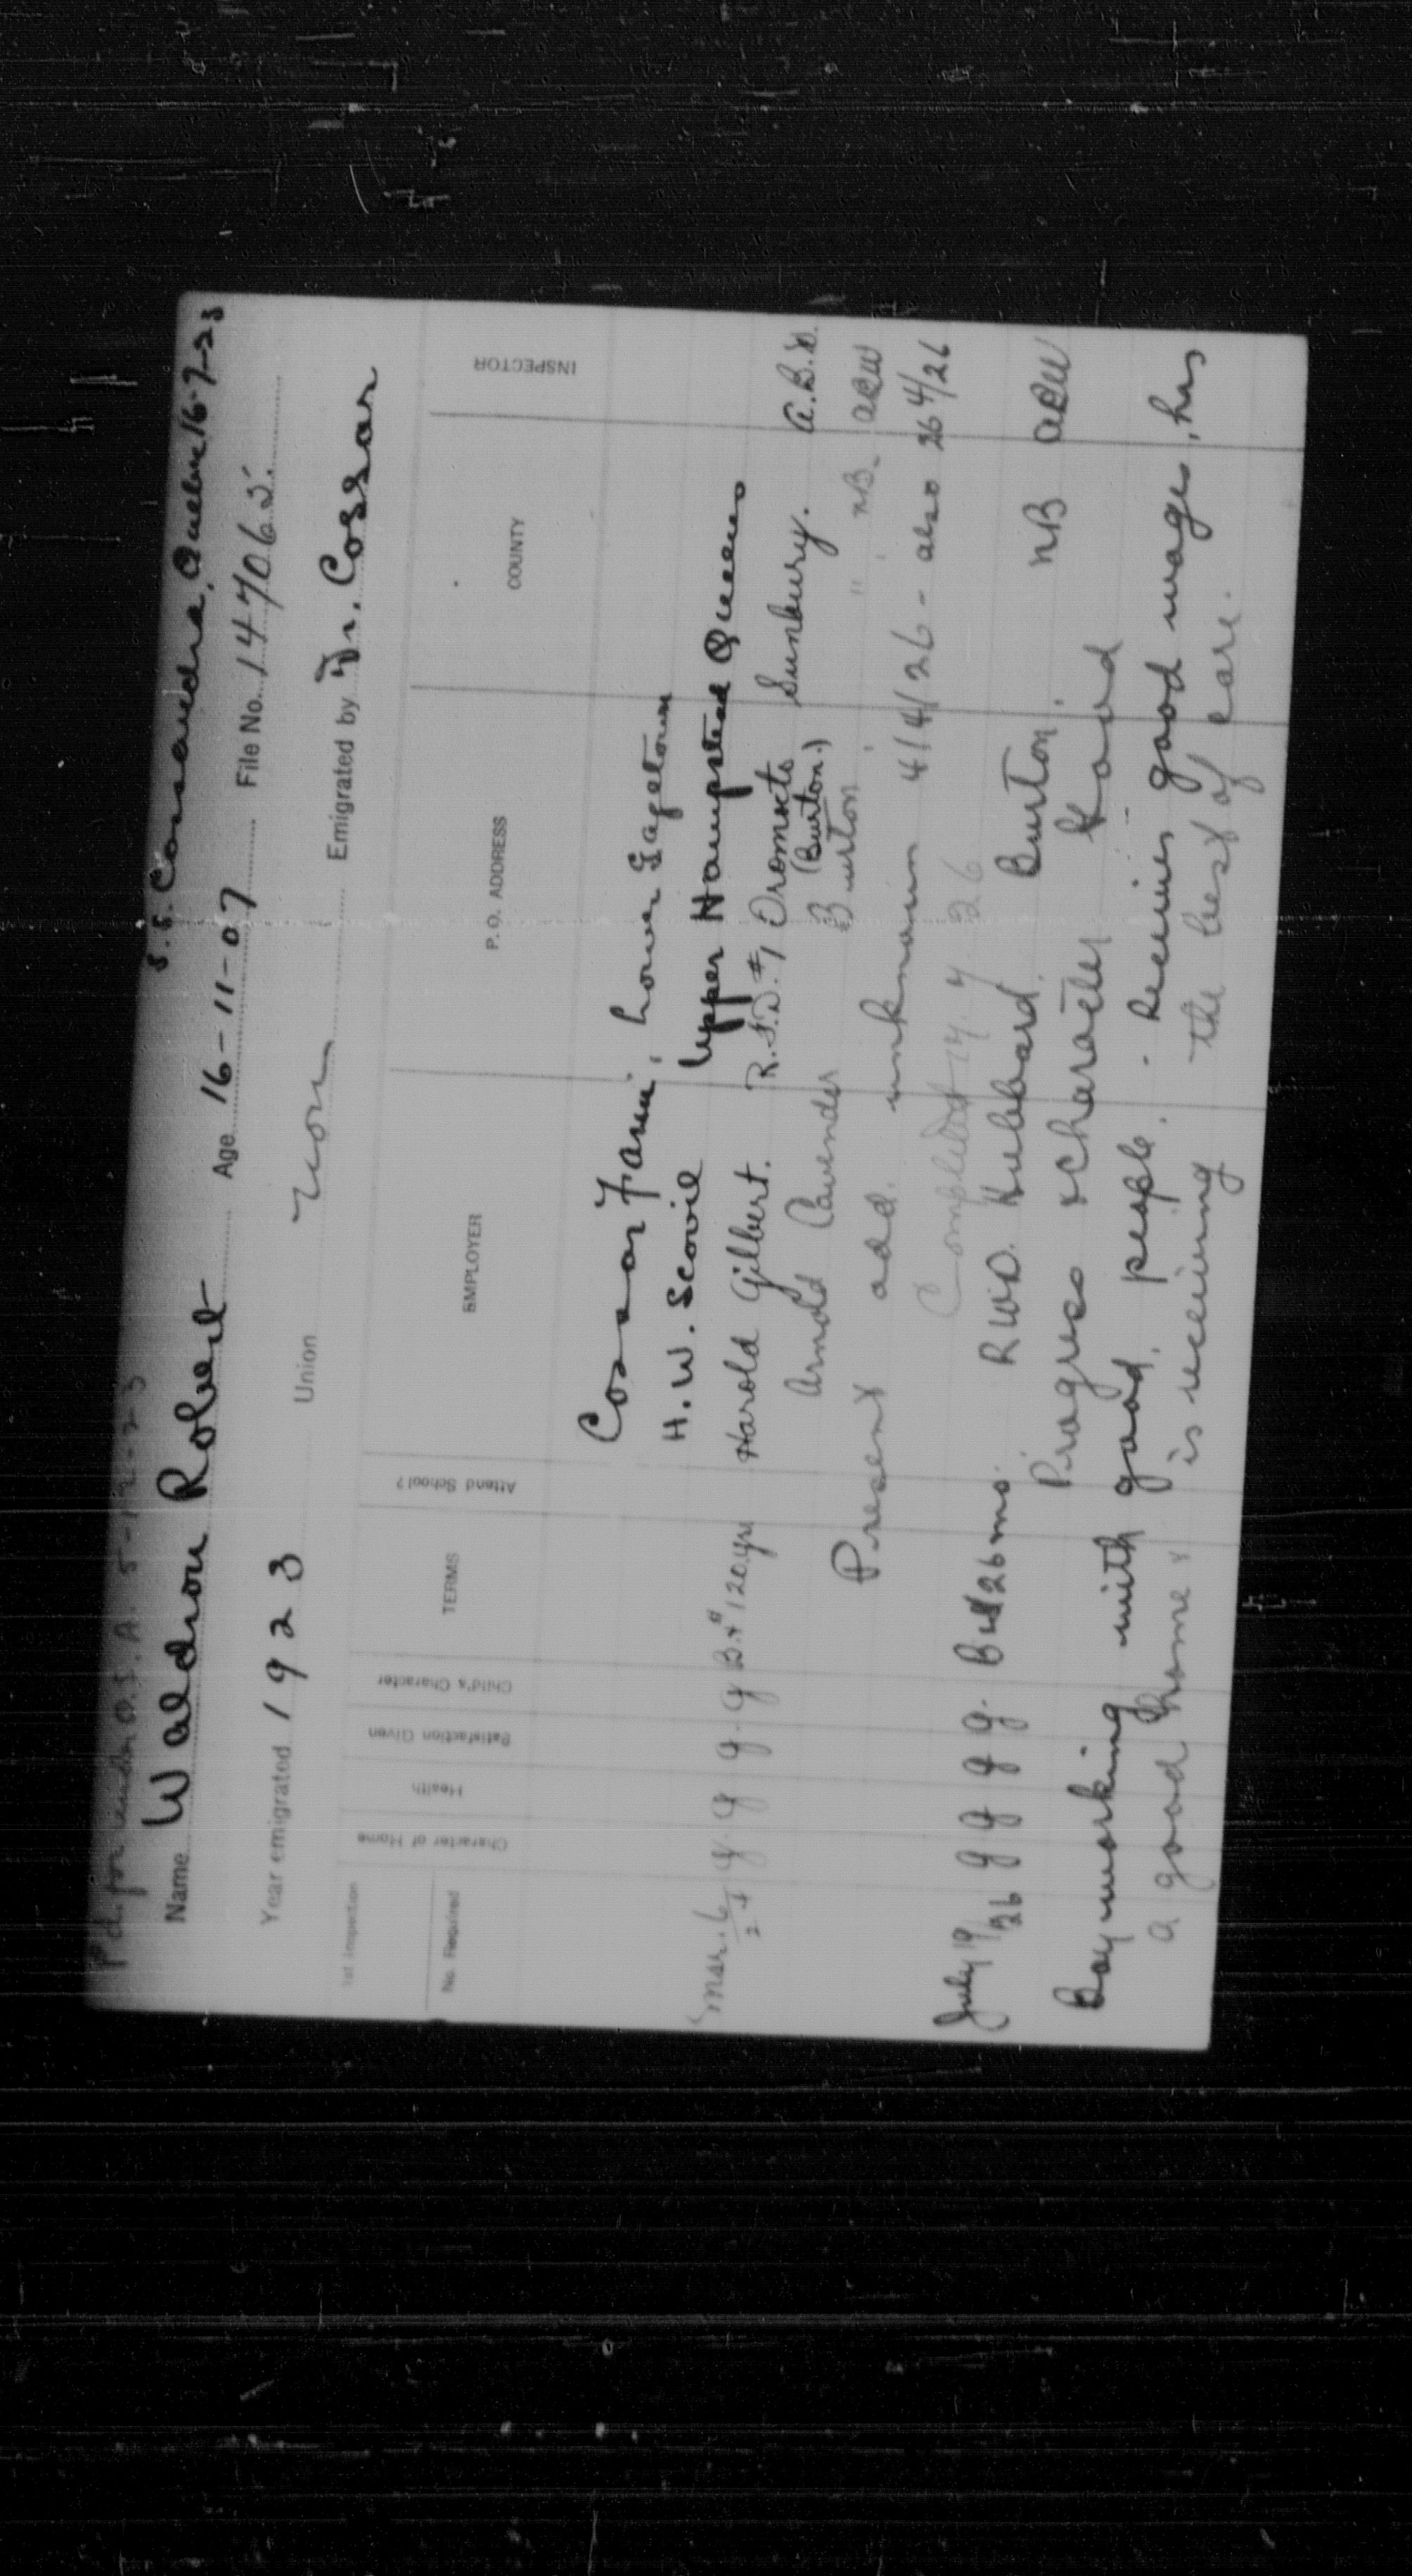 Pd. for under O.S.A. 5-12-23
S.S. Cassandra, Quebec 16-7-23
Name Waldron Robert Age 16-11-07 File No. 147065.
Year emigrated 1923 Union non Emigrated by Dr. Cossar
1st Inspection
No. Required Character of Home Health Satisfaction Given Child's Character TERMS Attend School? EMPLOYER P.O. ADDRESS COUNTY INSPECTOR
Cossar Farm, Lower Gagetown
H. W. Scovil Upper Hampstead Queens
Mar. 6/24 g. g g. g B.+ $120 yr Harold Gilbert. R.F.D. #1 Oromocto Sunbury. A.B.D.
(Burton.)
Arnold Cavender Burton " " NB.
Present add. unknown 4/4/26 - also 26 4/26
Completed 19 7 26
July 19/26 g g g g. B $26 mo. R W D. Hubbard. Burton. NB
Progress & Character Good
Boy working with good people. - Receives good wages, has
a good home & is receiving the best of care.